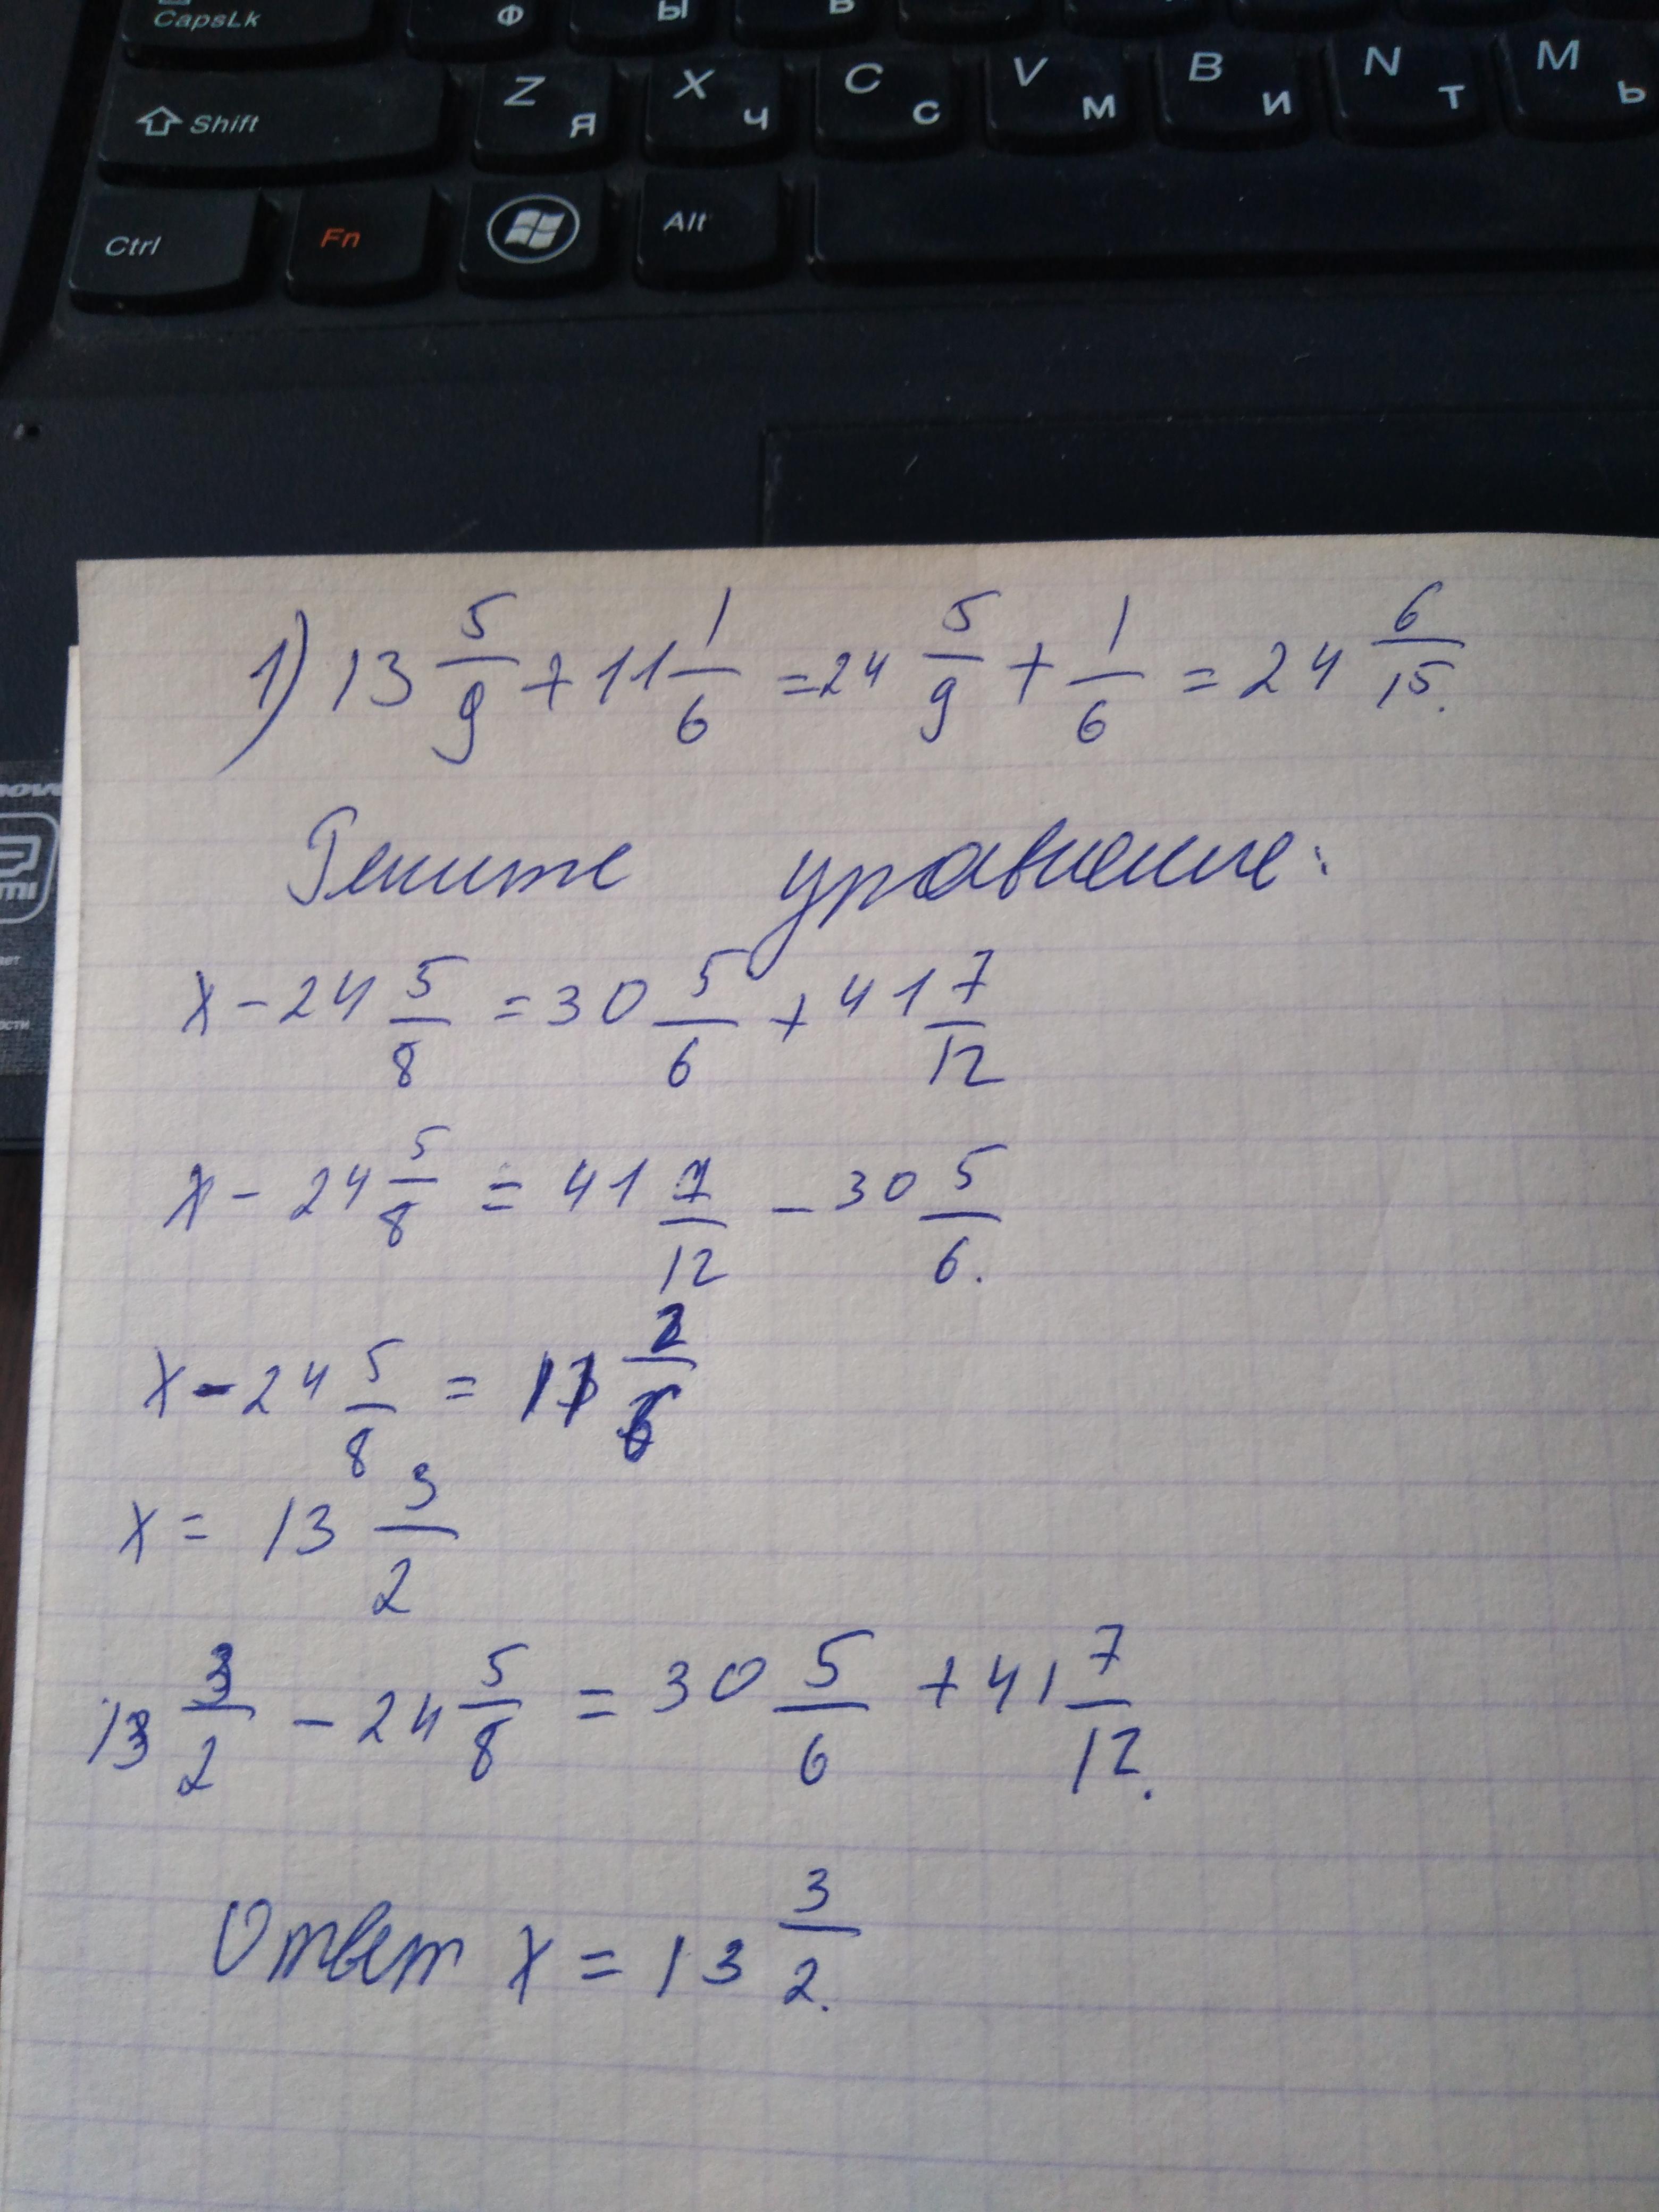 CapsLk Ф Ы В
Shift Z Я X Ч C С V М B И N Т M Ь
Ctrl Fn Alt
1) 13 5/9 + 11 1/6 = 24 5/9 + 1/6 = 24 6/15.
Решите уравнение:
x - 24 5/8 = 30 5/6 + 41 7/12
x - 24 5/8 = 41 7/12 - 30 5/6.
x - 24 5/8 =
x = 13 3/2
13 3/2 - 24 5/8 = 30 5/6 + 41 7/12.
Ответ x = 13 3/2.